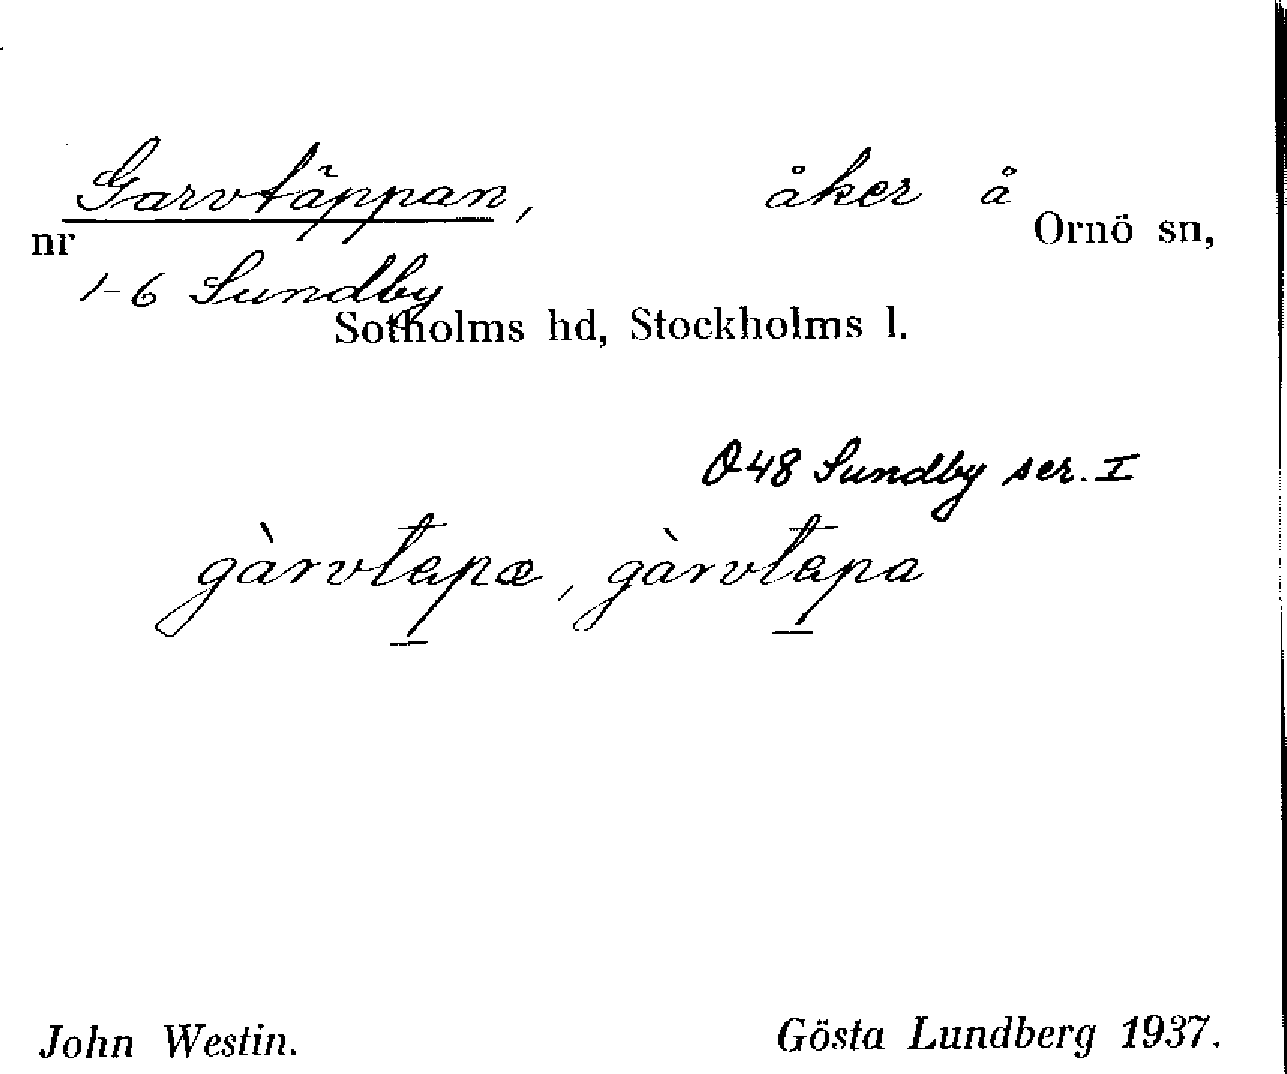 Garvtäppan, åker å
nr Ornö sn,
1-6 Sundby
Sotholms hd, Stockholms l.
O48 Sundby ser. I
gàrvtapæ, gàrvtapa
John Westin. Gösta Lundberg 1937.